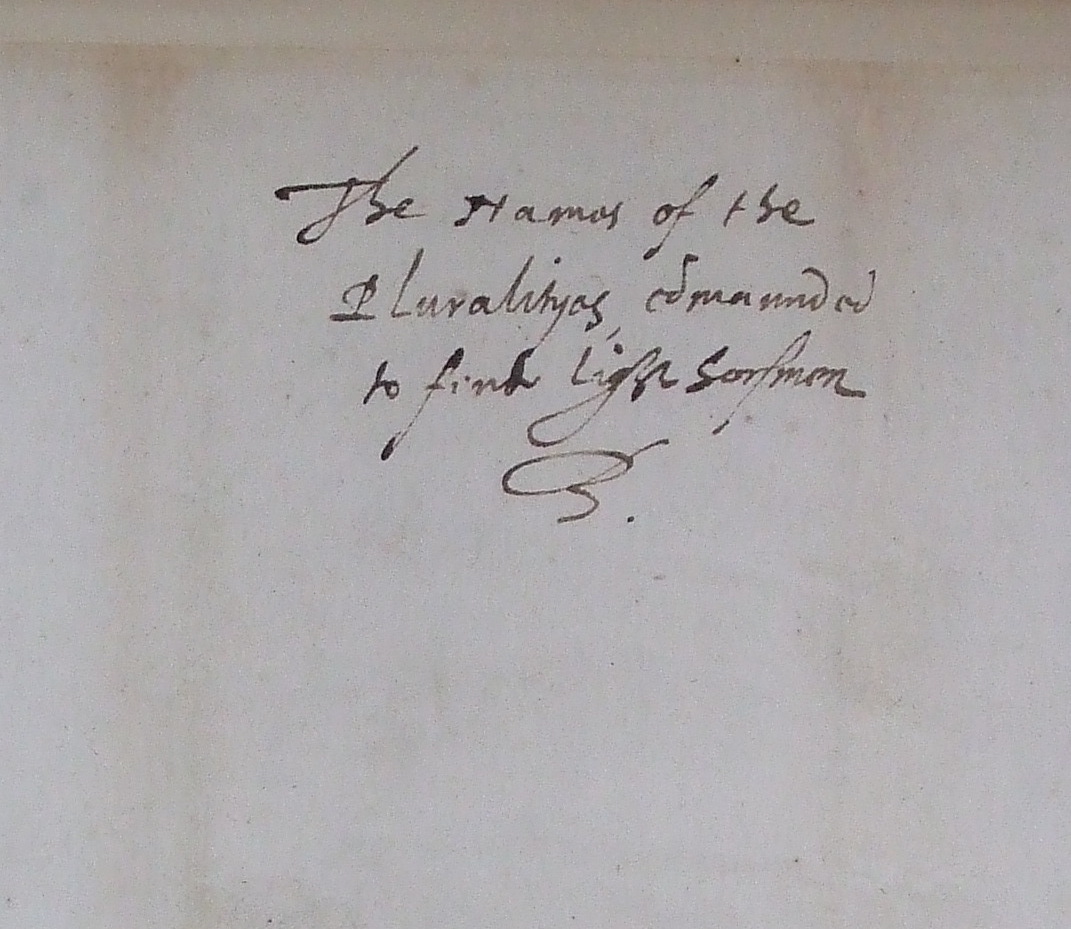 The Names of the
Pluralityes, cōmaunded
to find light horsmen